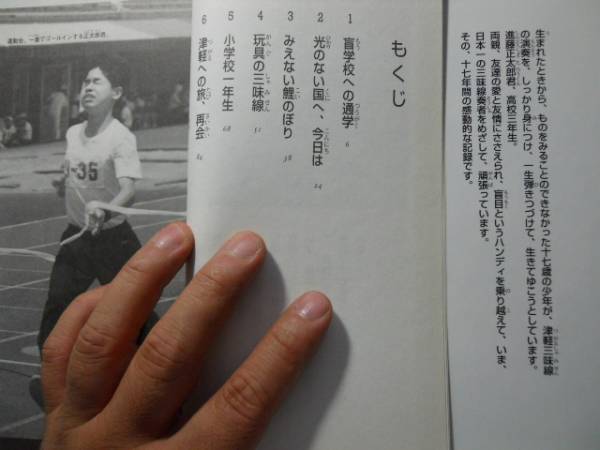 生まれたときから、ものをみることのできなかった十七歳の少年が、津軽三味線
の演奏を、しっかり身につけ、一生弾きつづけて、生きてゆこうとしています。
進藤正太郎君、高校三年生。
両親、友達の愛と友情にささえられ、盲目というハンディを乗り越えて、いま、
日本一の三味線奏者をめざして、頑張っています。
その、十七年間の感動的な記録です。
もくじ
1 盲学校への通学 6
2 光のない国へ、今日は 24
3 みえない鯉のぼり 38
4 玩具の三味線 51
5 小学校一年生 68
6 津軽への旅、再会
運動会、一着でゴールインする正太郎君。
35